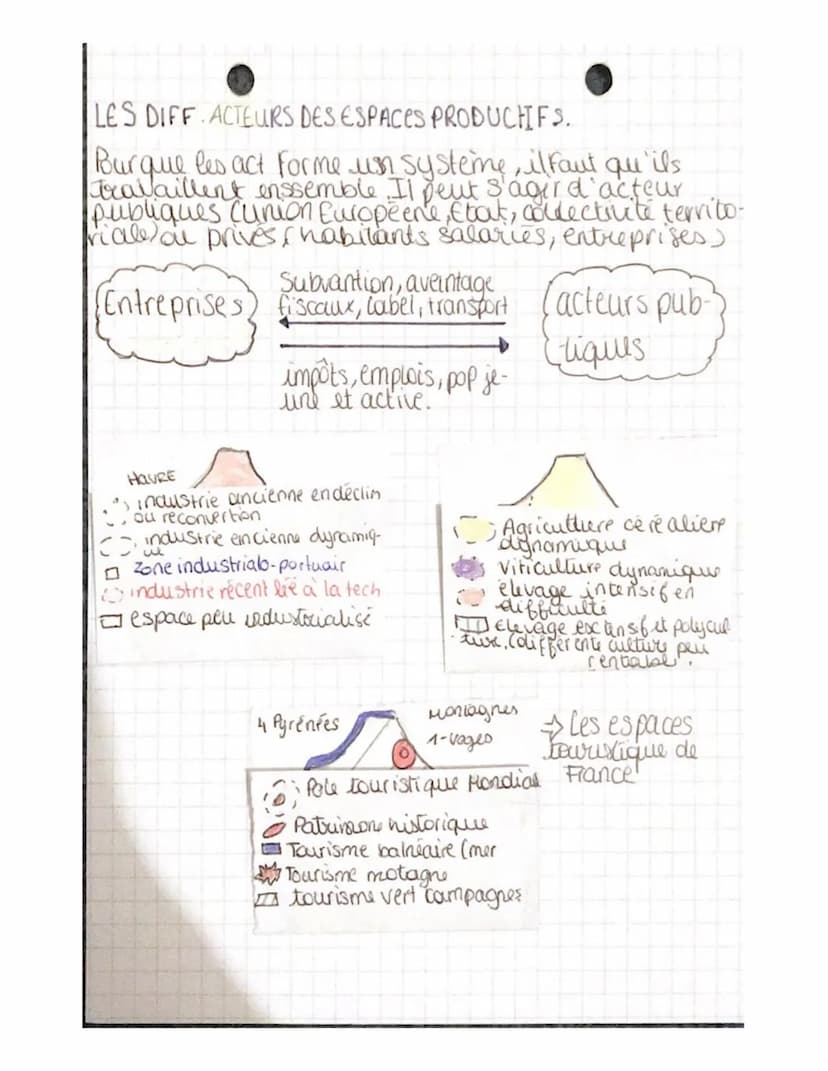 LES DIFF. ACTEURS DES ESPACES PRODUCTIFS.
Pour que les act forme un système, il faut qu'ils
travaillent enssemble. Il peut s'agir d'acteur
publiques (union Européene, Etat, collectivité territo-
riale) ou privés (habitants salariés, entreprises)
Entreprises
Subvantion, aveintage
fiscaux, label, transport
acteurs pub-
liques
impôts, emplois, pop je-
une et active.
HAVRE
industrie ancienne en déclin
ou reconvertion
industrie encienne dynamiq-
ue
zone industrialo-portuair
industrie récent lié à la tech
espace peu industrialisé
Agriculture céréaliere
dynamique
viticulture dynamique
élevage intensif en
difficulté
Elevage extensif et polycul
ture, (différente culture peu
rentable.
4 Pyrénées
Montagnes
1-Vages
⇒ Les espaces
touristique de
France
Pole touristique Mondial
Patrimon historique
Tourisme balnéaire (mer
Tourisme motagne
tourisme vert campagnes